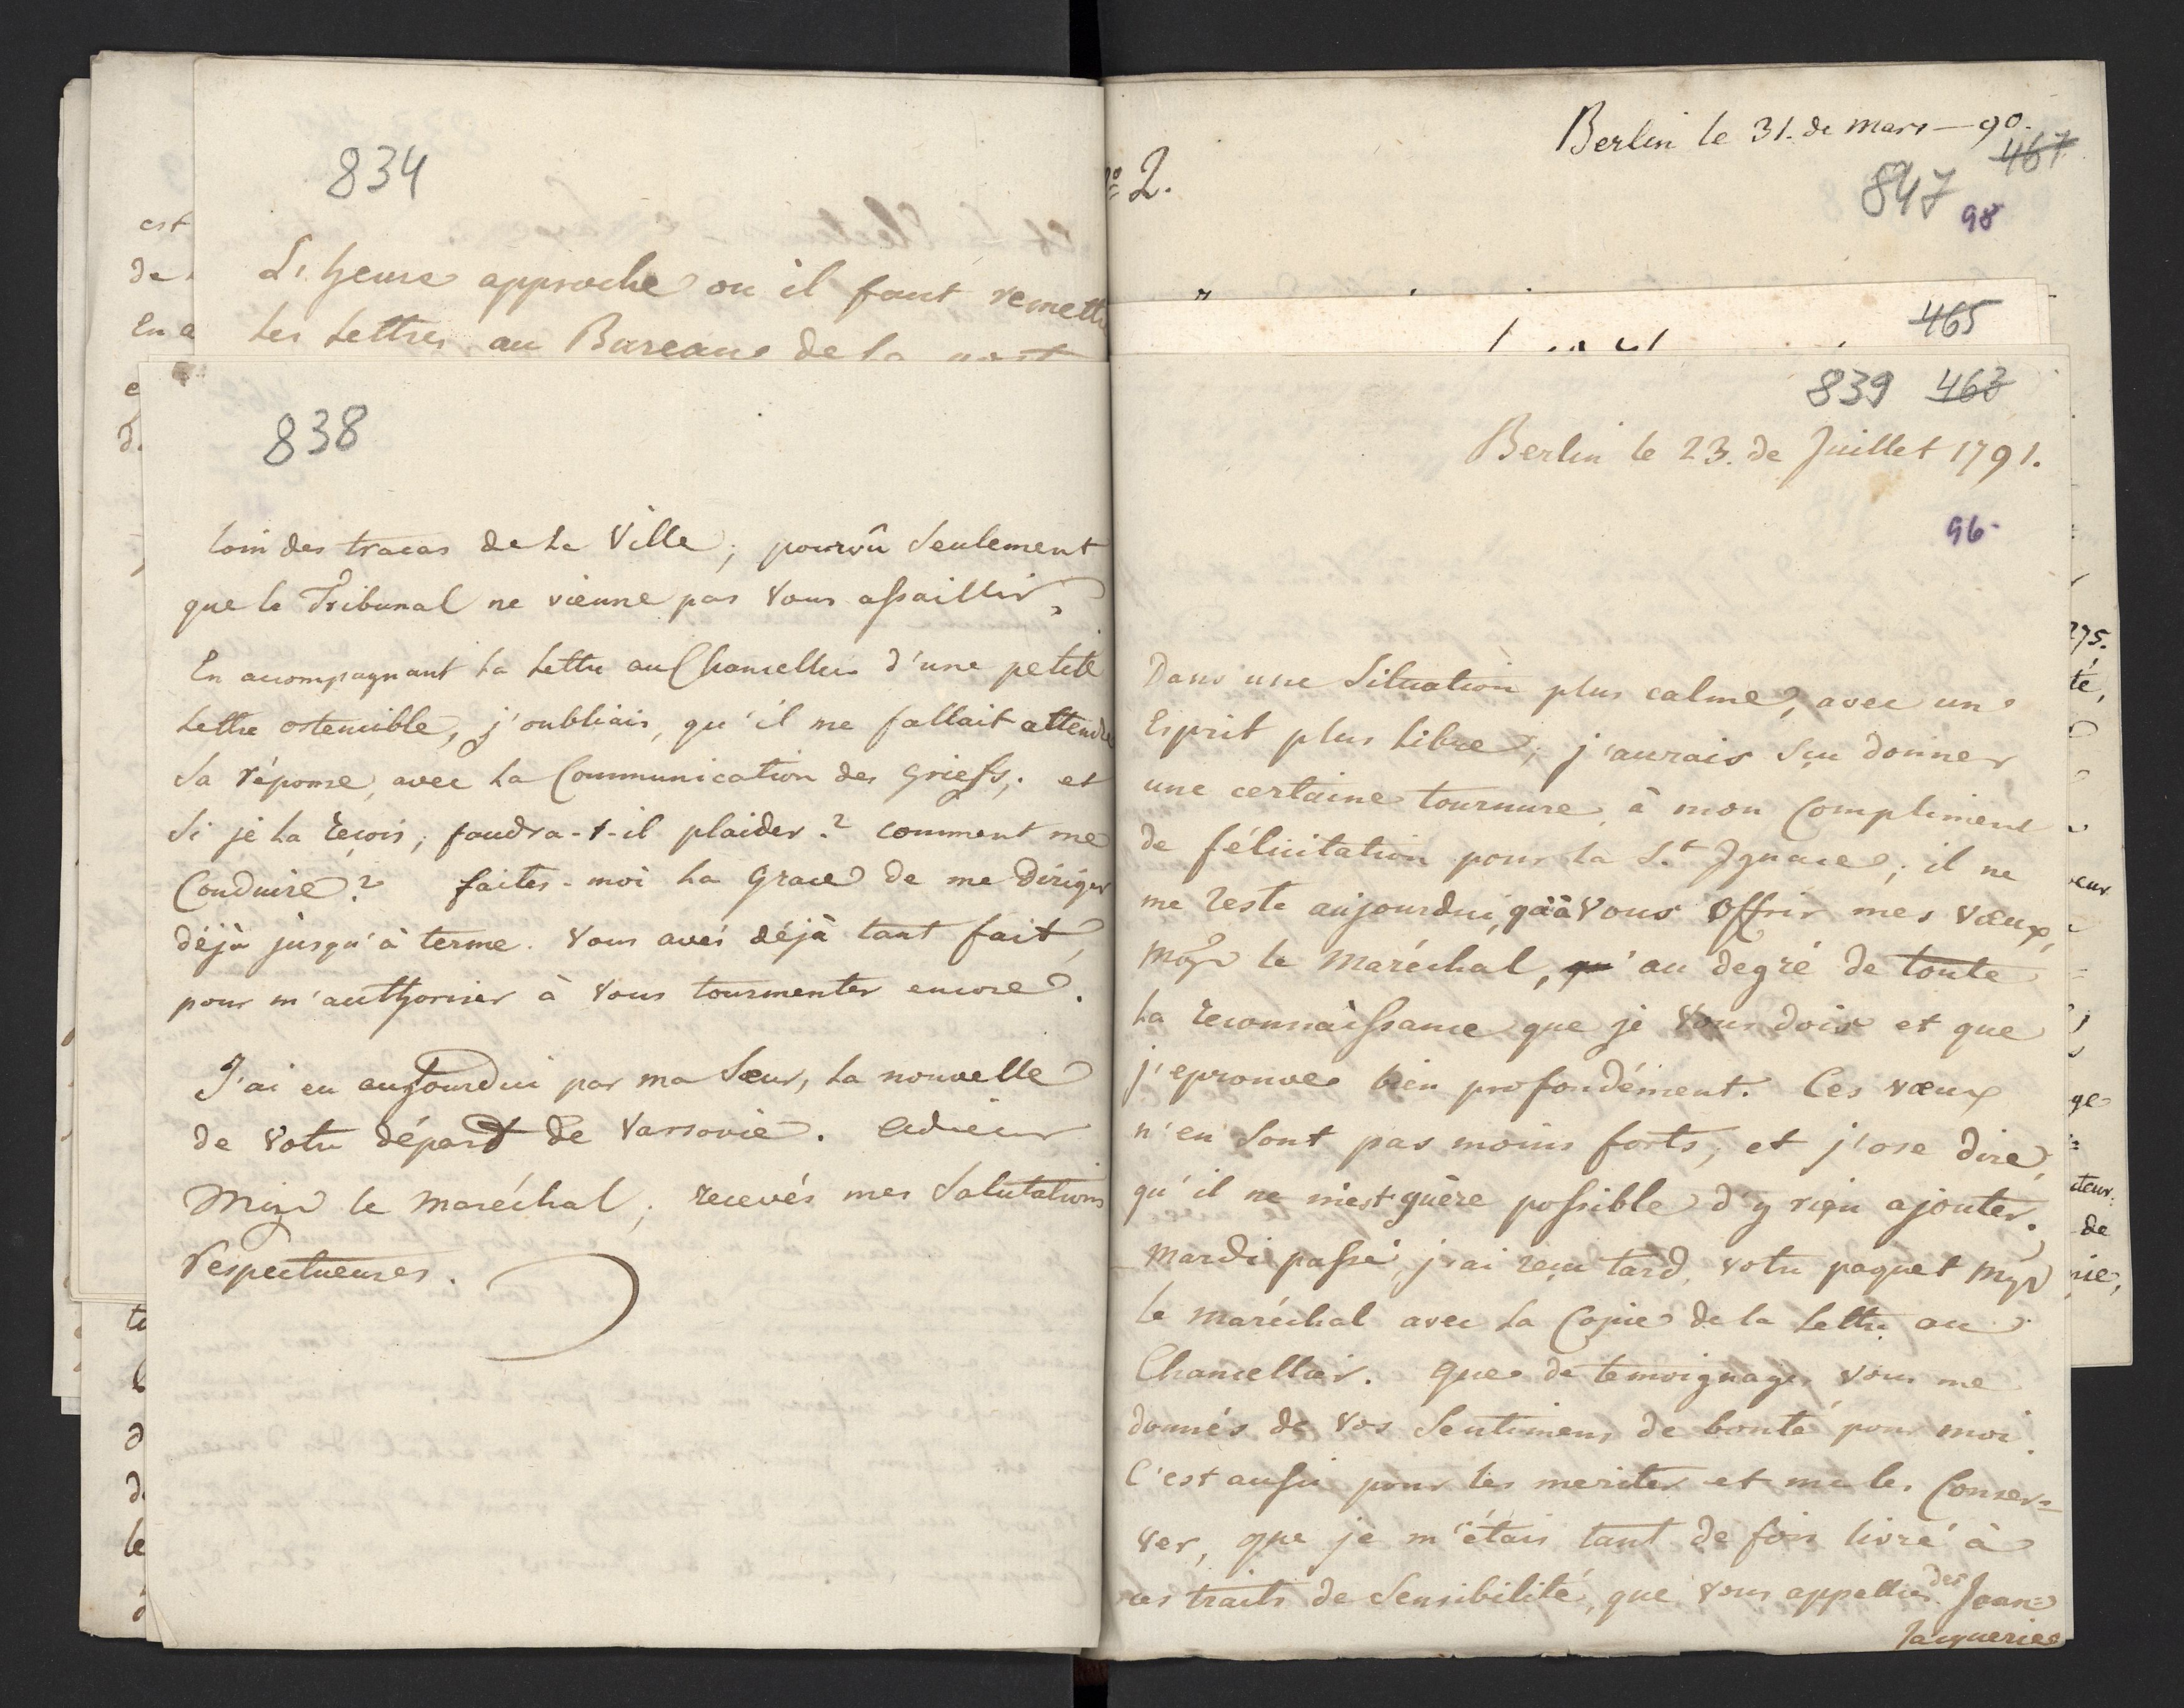 834
L'heure approche ou il faut remett
les Lettres au Bureau de la
est
de
En a
838
loin des tracas de la Ville; pourvû seulement
que le Tribunal ne vienne pas vous assaillir.
En accompagnant la Lettre au Chancellier d'une petite
Lettre ostensible, j'oubliais, qu'il me fallait attendre
sa réponse, avec la Communication des griefs; et
si je la reçois, faudra-t-il plaider? comment me
Conduire? faites-moi la grace de me diriger
déjà jusqu'à terme. Vous avés déjà tant fait,
pour m'authoriser à vous tourmenter encore.
J'ai eu aujourdui par ma Sœur, la nouvelle
de votre départ de Varsovie. Adieu
Msgr le Maréchal; recevés mes Salutations
respectueuses.
Berlin le 31. de mars—90.
467
847
98
2.
465
839 463
Berlin le 23. de Juillet 1791.
96
Dans une Situation plus calme, avec un
Esprit plus libre, j'aurais sçu donner
une certaine tournure à mon Compliment
de félicitation pour la St Ignace; il ne
me reste aujourdui, qu'à vous offrir mes vœux,
Msgr le Maréchal, qu' au degré de toute
la reconnaissance que je vous dois et que
j'eprouve bien profondément. Ces vœux
n'en sont pas moins forts, et j'ose dire,
qu'il ne m'est guère possible d'y rien ajouter.
Mardi passé, j'ai reçu tard, votre paquet Msgr
le Maréchal avec la Copie de la Lettre au
Chancellier. Que de temoignages vous me
donnés de vos Sentimens de bonté pour moi.
C'est aussi pour les meriter et me les Conser=
ver, que je m'étais tant de fois livré à
ces traits de Sensibilité, que vous appelliés des Jean=
Jacqueries
275.
té,
eur
ge
de
nie,